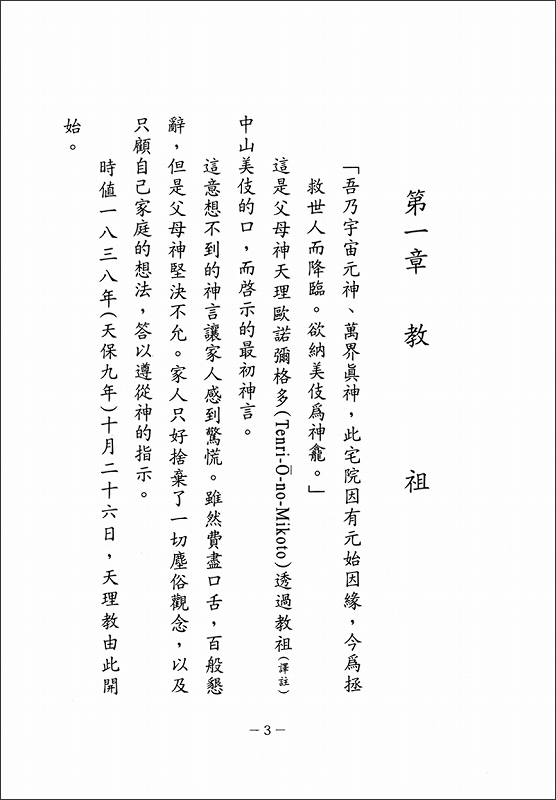 第一章　教　祖
「吾乃宇宙元神、萬界眞神，此宅院因有元始因緣，今爲拯
救世人而降臨。欲納美伎爲神龕。」
這是父母神天理歐諾彌格多(Tenri-Ō-no-Mikoto)透過教祖(譯註)
中山美伎的口，而啓示的最初神言。
這意想不到的神言讓家人感到驚慌。雖然費盡口舌，百般懇
辭，但是父母神堅決不允。家人只好捨棄了一切塵俗觀念，以及
只顧自己家庭的想法，答以遵從神的指示。
時値一八三八年(天保九年)十月二十六日，天理教由此開
始。
－3－